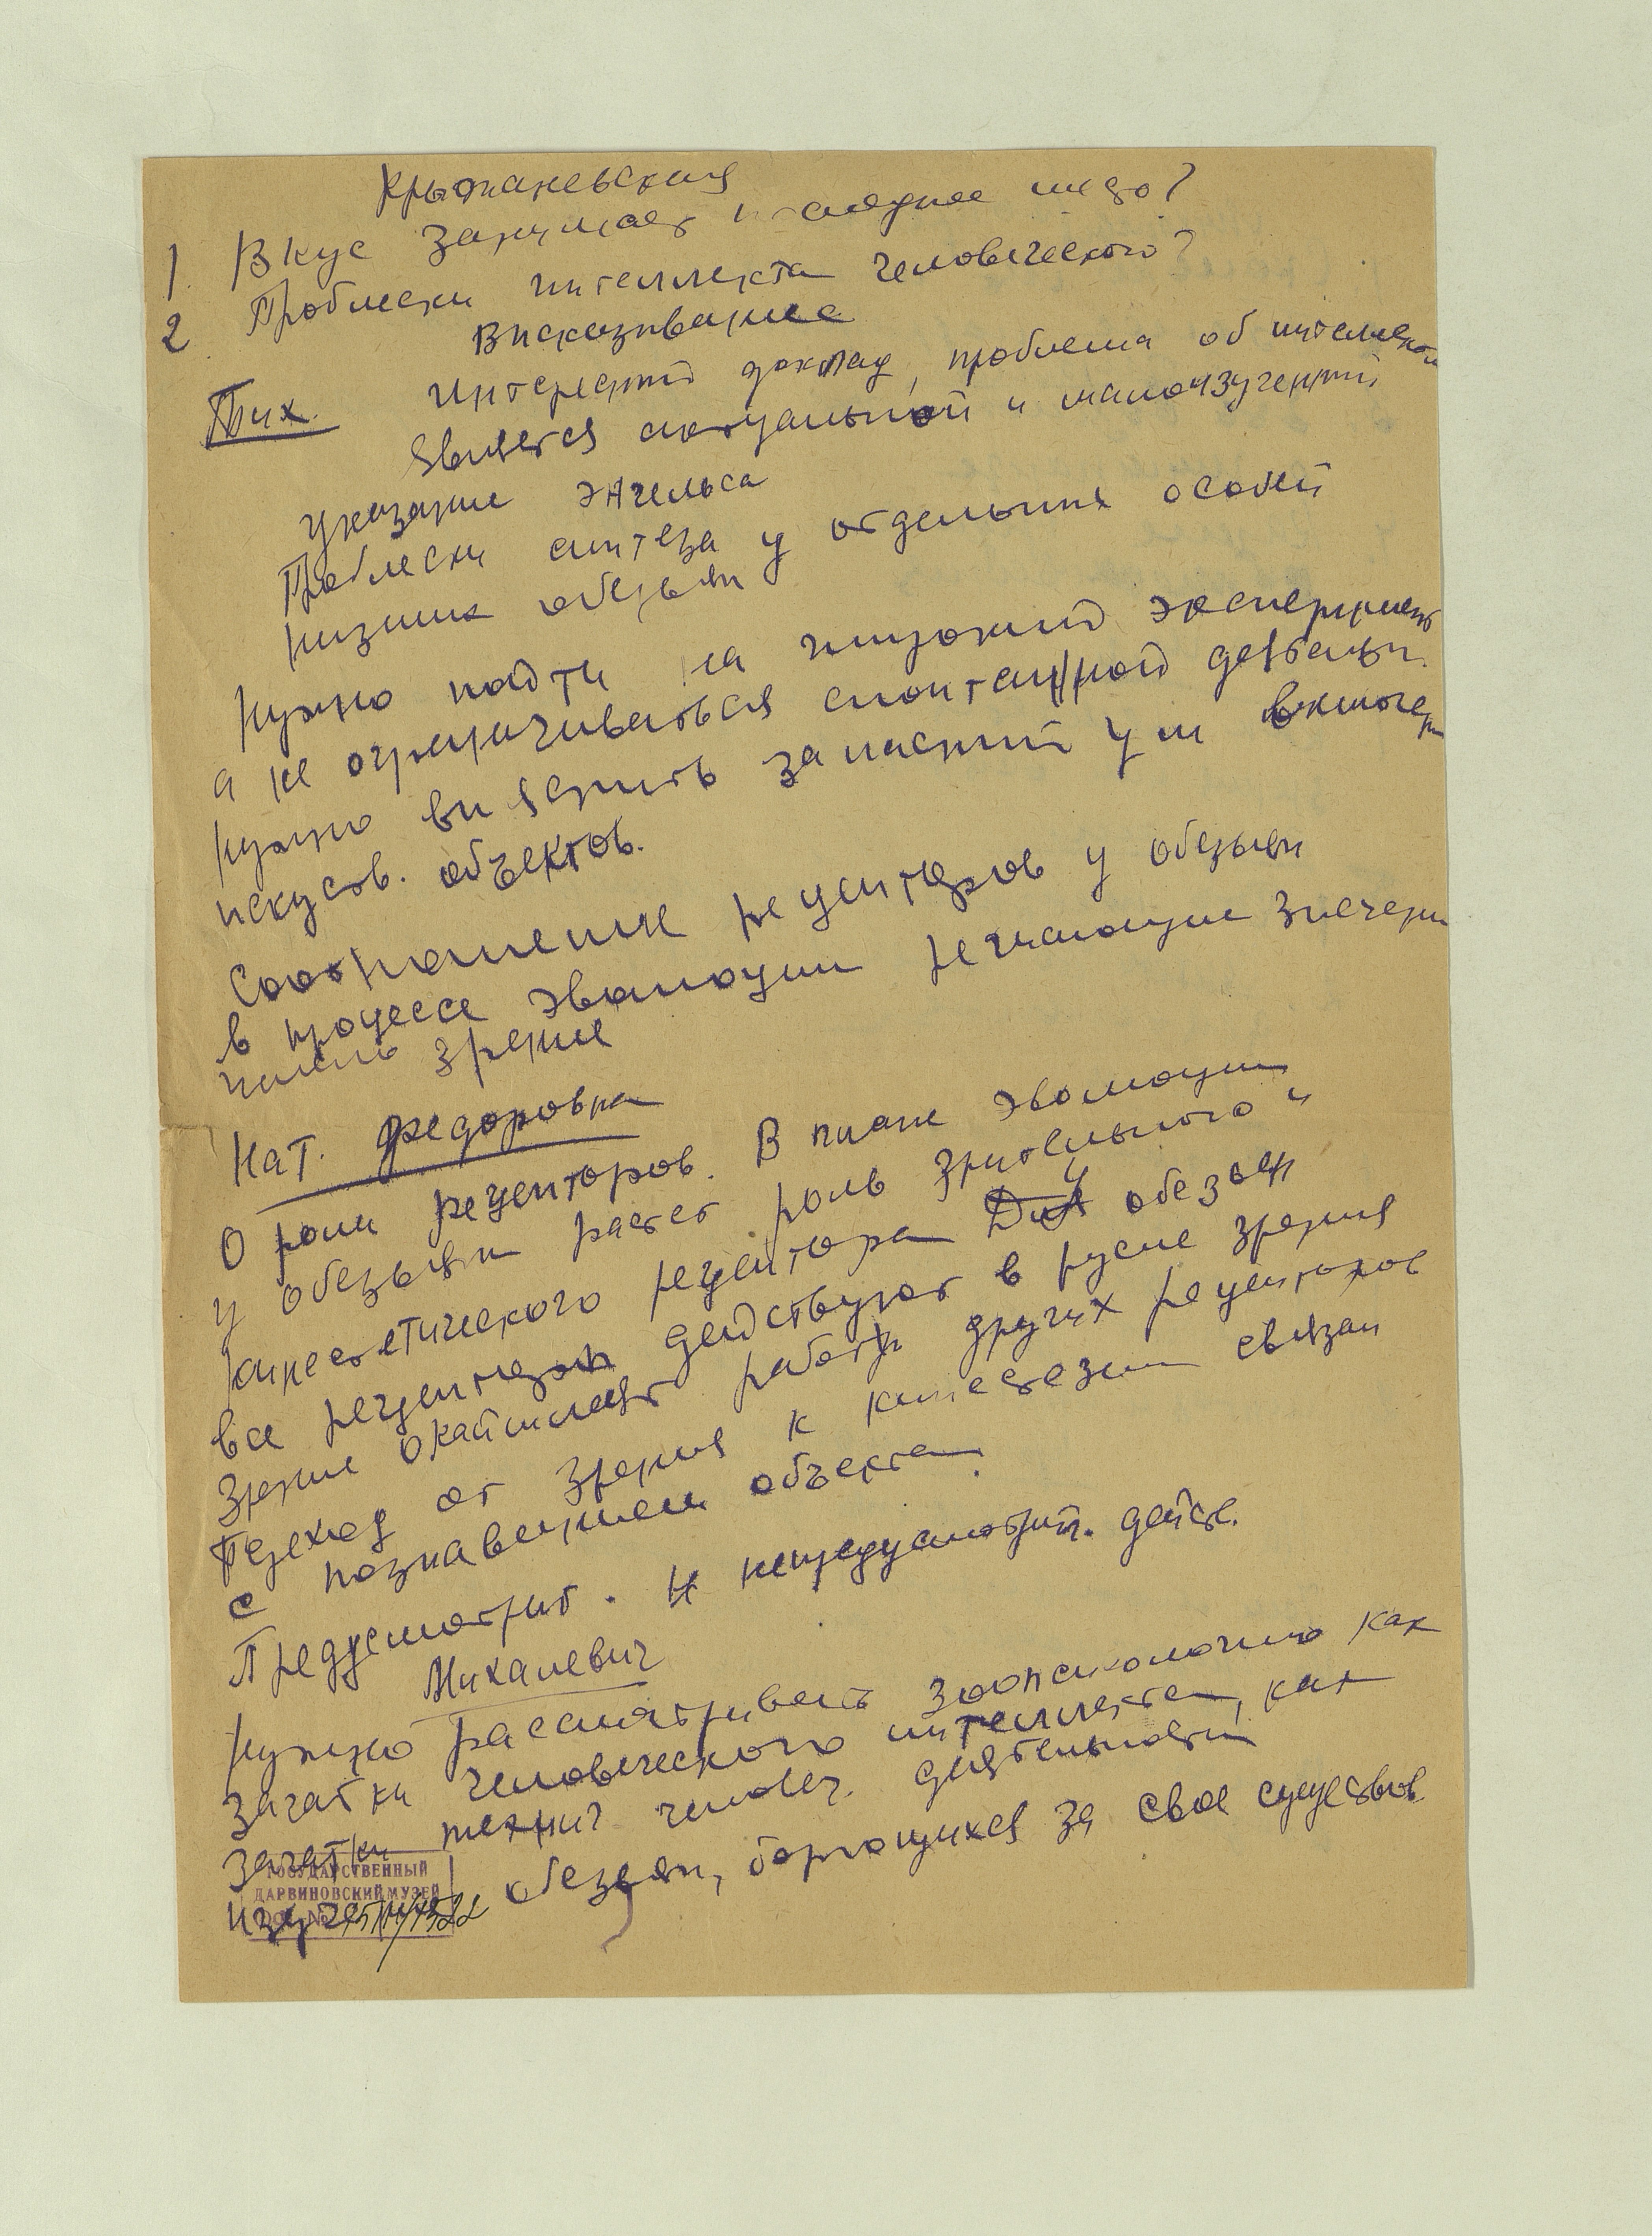 Крыжаневская
1. Вкус занимает последнее место?
2 Проблески интеллекта человеческого?
Высказывание
Тих. Интересный доклад, проблема об интеллекте
является актуальной и малоизученной
Указание Энгельса
Проблески синтеза у отдельных особей
низших обезьян
Нужно пойти на широкий эксперимент
а не ограничиваться спонтанной деятельн.
Нужно выяснить запасный ум включен.
искусств. объектов.
Соотношение рецепторов у обезьян
в процессе эволюции решающие значени
имело зрение
Нат. Федоровна
О роли рецепторов. В плане эволюции
у обезьян растет роль зрительного и
кинестетического рецептора Для у обезьян
все рецепторы действуют в русле зрения
Зрение окаймляет работу других рецепторов
Переход от зрения к кинестезии связан
с познаванием объекта.
Предусмотрит. и непредусмотрит. действ.
Михалевич
Нужно рассматривать зоопсихологию как
зачатки человеческого интеллекта, как
зачатки технич человеч. деятельности
изучение обезьян, борющихся за свое существов.
ГОСУДАРСТВЕННЫЙ
ДАРВИНОВСКИЙ МУЗЕЙ